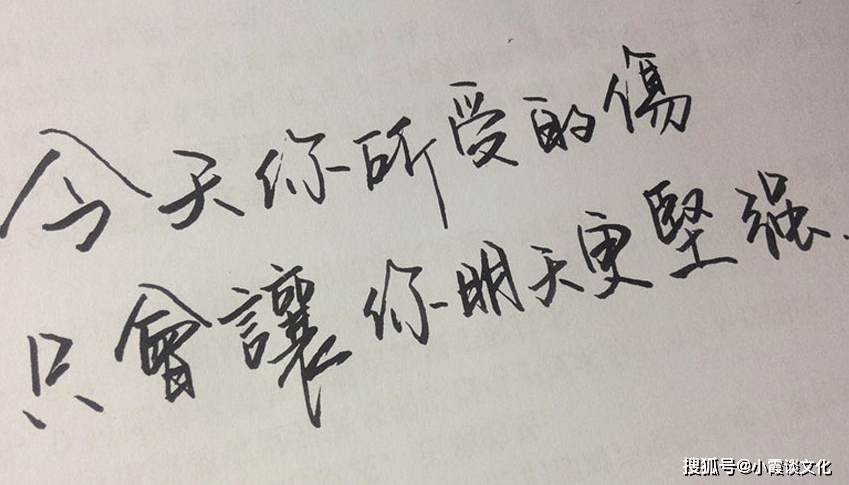 今天你所受的傷
只會讓你明天更堅强.
搜狐号@小霞谈文化